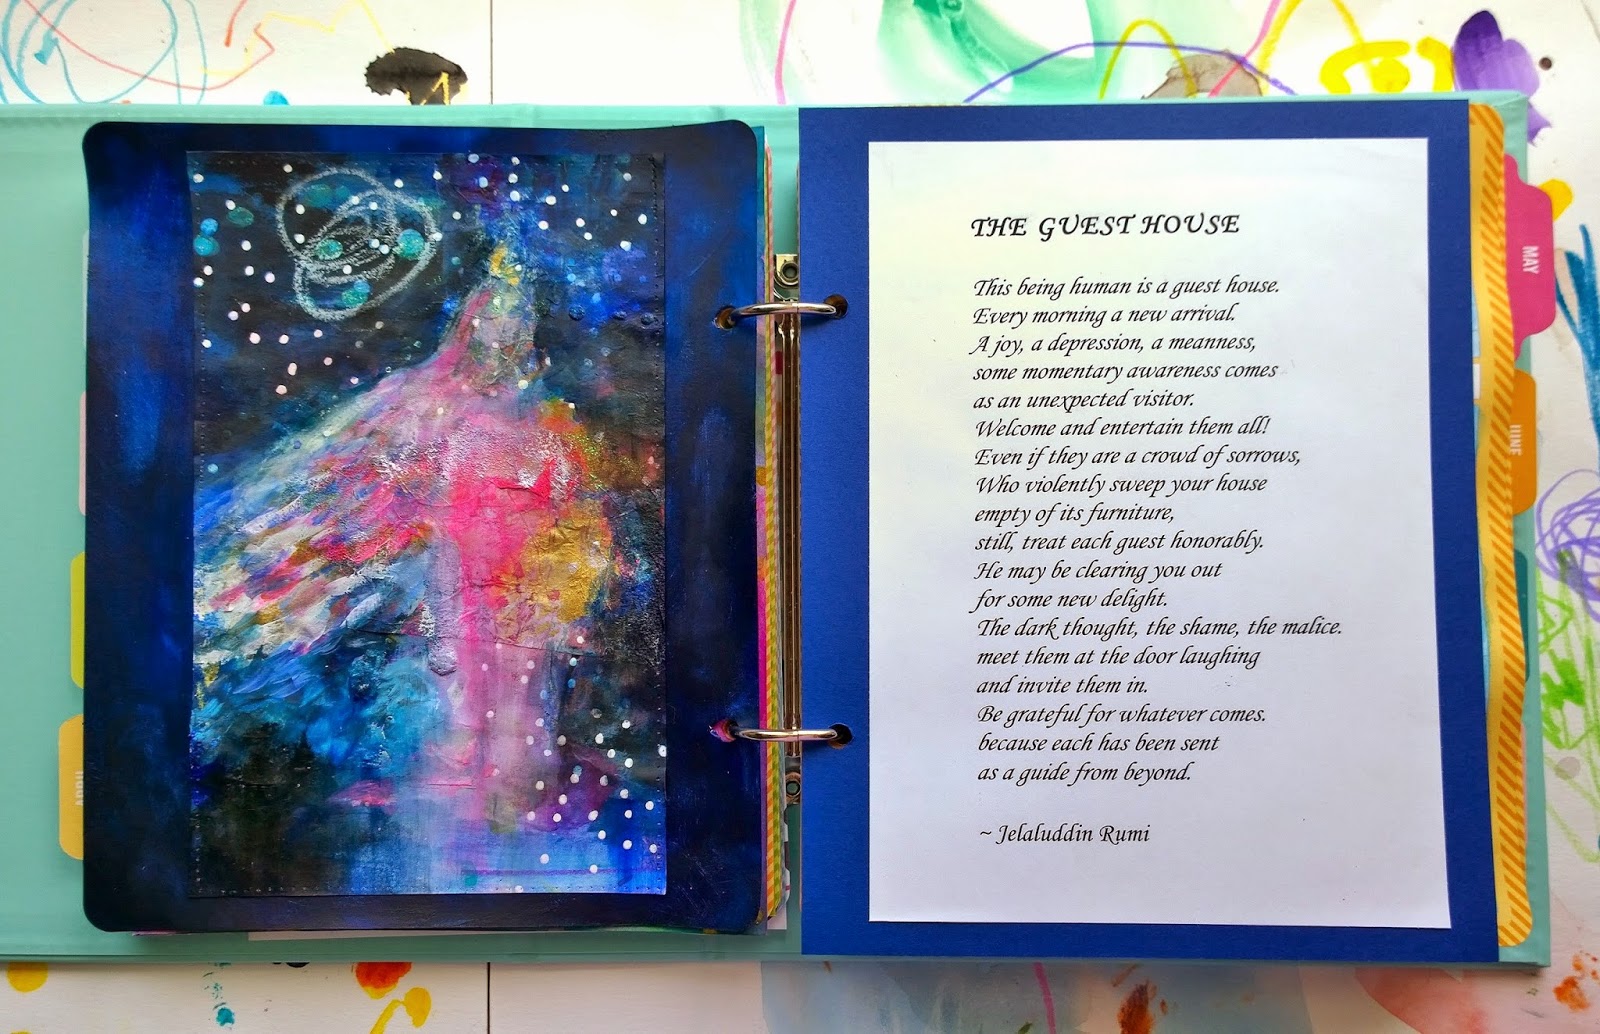 THE GUEST HOUSE
This being human is a guest house.
Every morning a new arrival.
A joy, a depression, a meanness,
some momentary awareness comes
as an unexpected visitor.
Welcome and entertain them all!
Even if they are a crowd of sorrows,
Who violently sweep your house
empty of its furniture,
still, treat each guest honorably.
He may be clearing you out
for some new delight.
The dark thought, the shame, the malice.
meet them at the door laughing
and invite them in.
Be grateful for whatever comes.
because each has been sent
as a guide from beyond.
~ Jelaluddin Rumi
MAY
JUNE